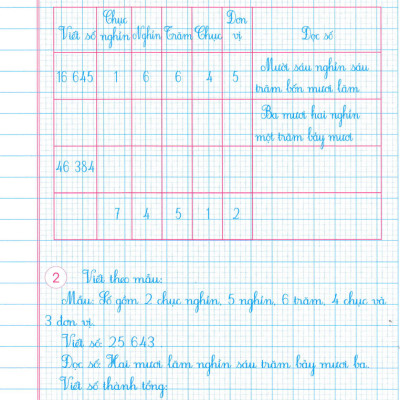 Viết số Chục nghìn Nghìn Trăm Chục Đơn vị Đọc số
16 645 1 6 6 4 5 Mười sáu nghìn sáu
trăm bốn mươi lăm
Ba mươi hai nghìn
một trăm bảy mươi
46 384
7 4 5 1 2
2 Viết theo mẫu:
Mẫu: Số gồm 2 chục nghìn, 5 nghìn, 6 trăm, 4 chục và
3 đơn vị.
Viết số: 25 643.
Đọc số: Hai mươi lăm nghìn sáu trăm bảy mươi ba.
Viết số thành tổng: